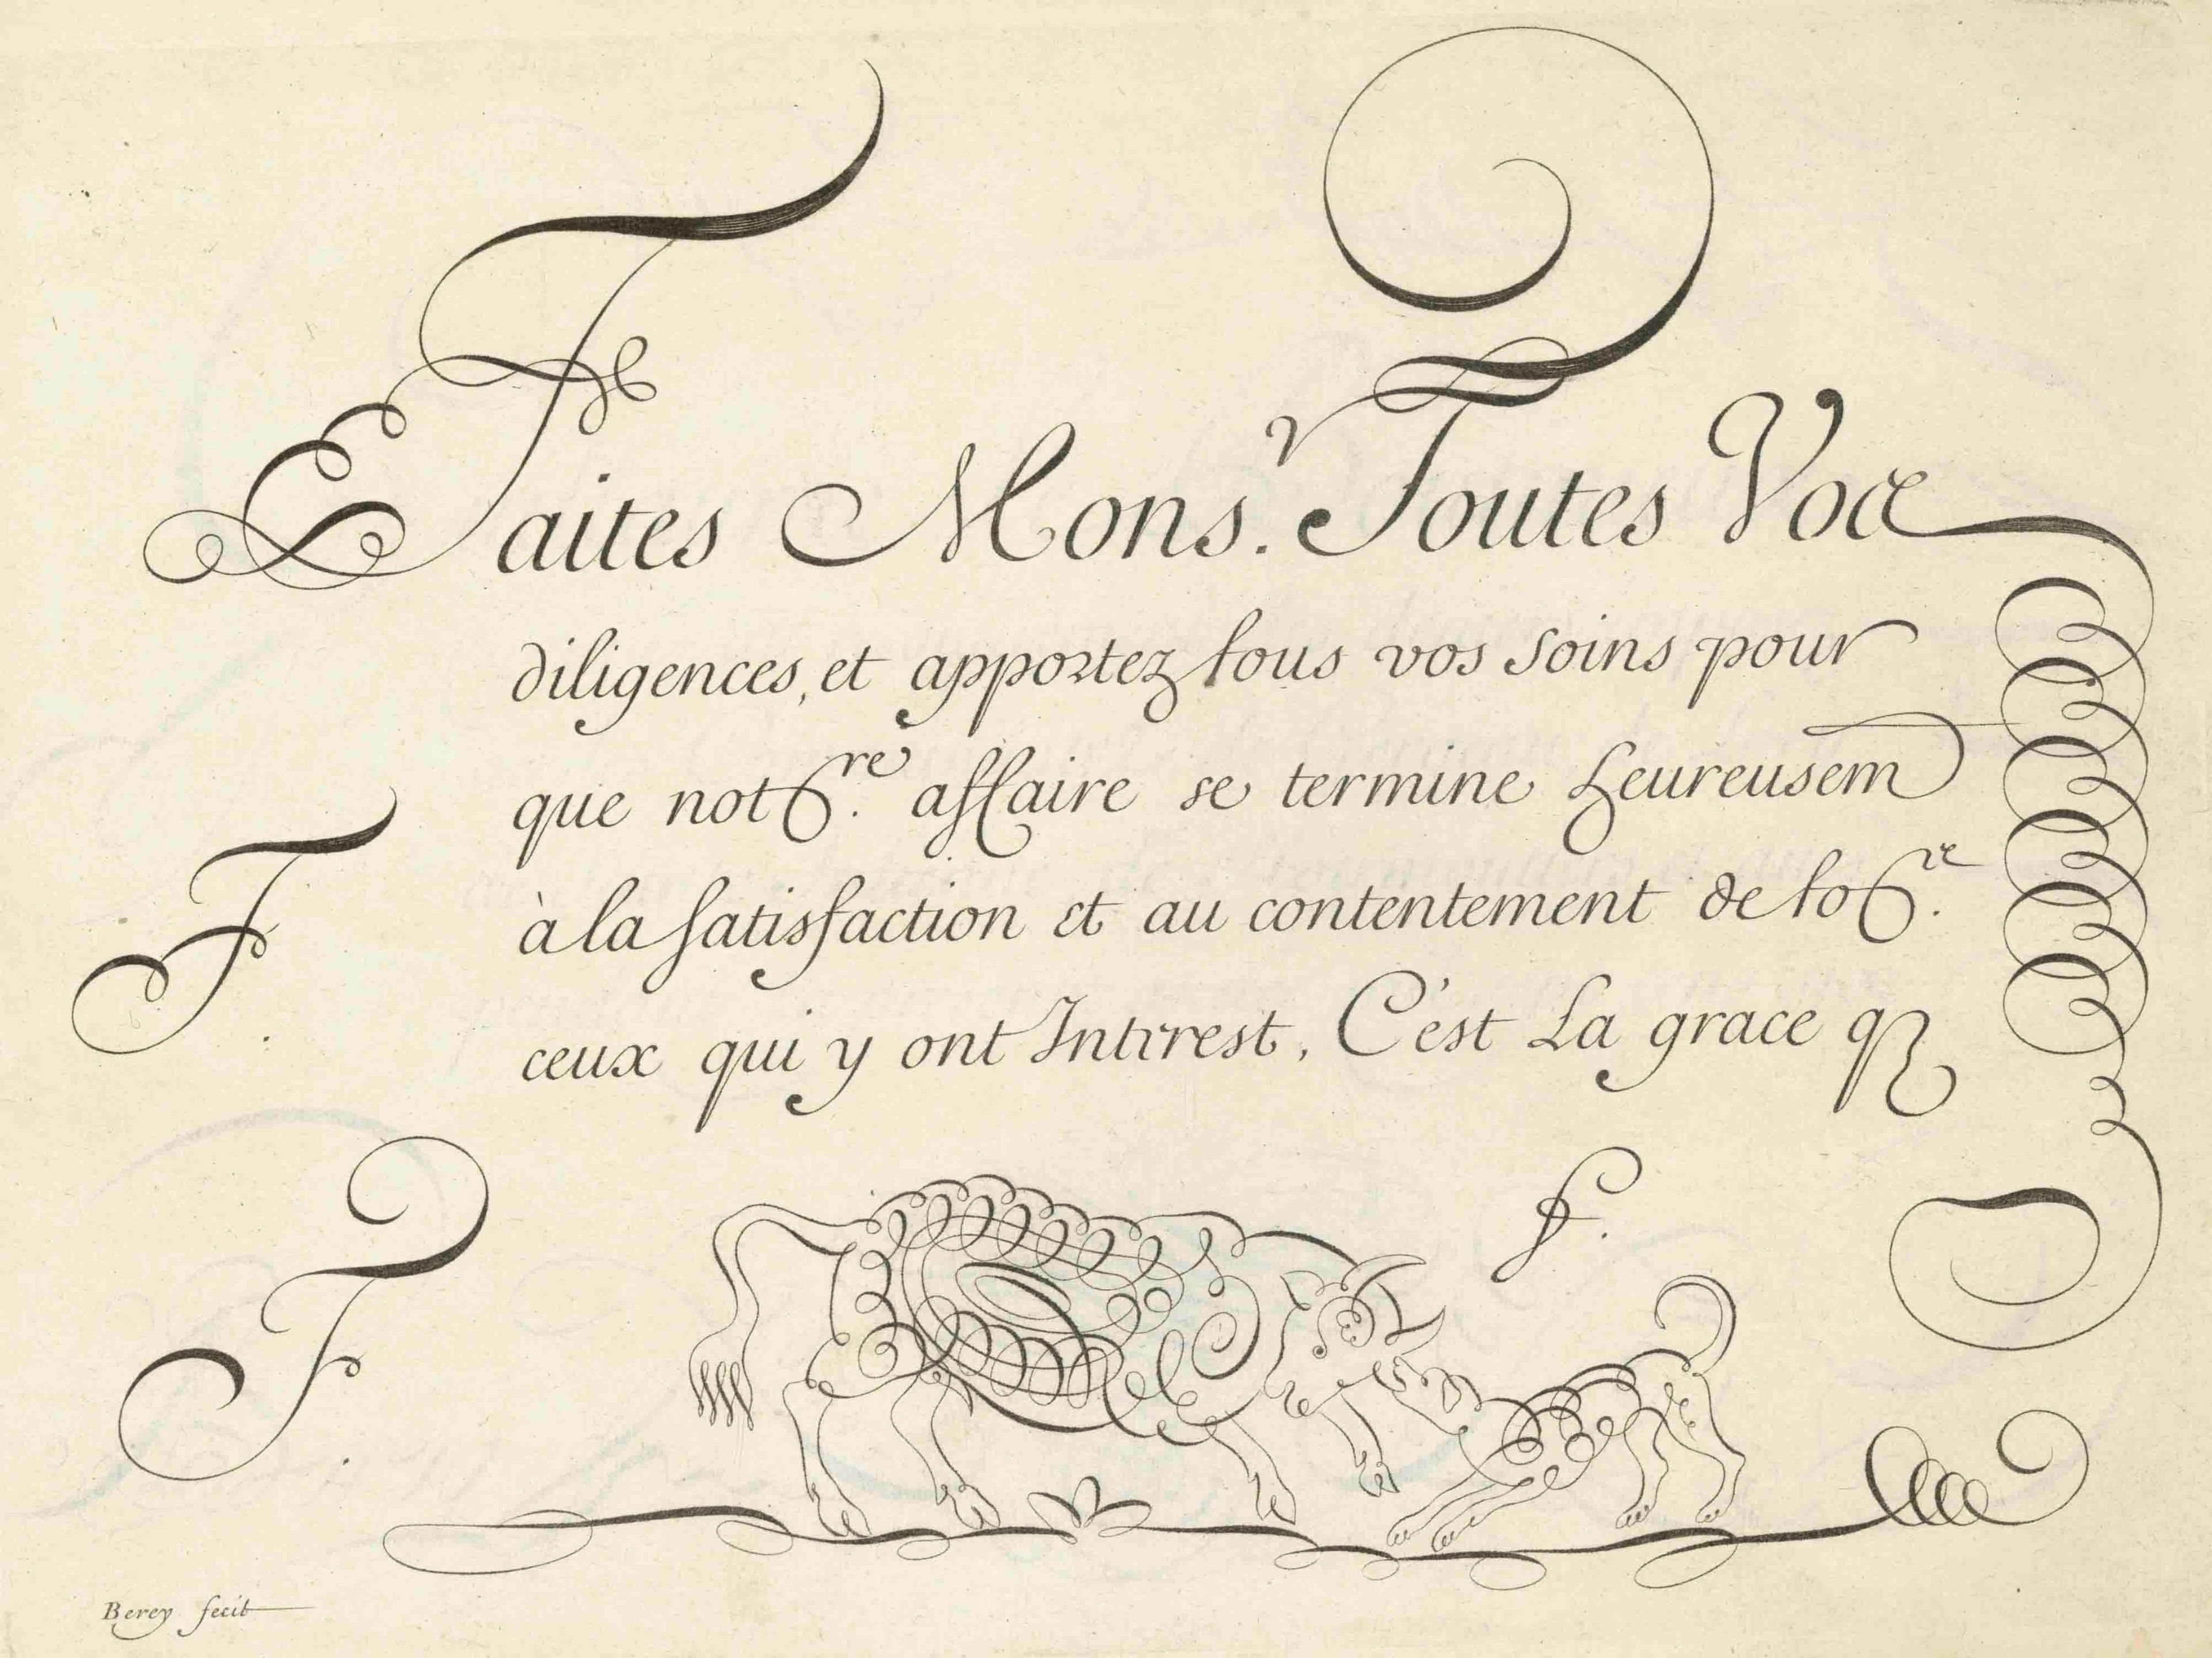 Faites Mons.r Toutes Voce
diligences, et apportez tous vos soins pour
que not6.re affaire se termine heureusem
à la satisfaction et au contentement de to6.re
ceux qui y ont Intirest, C'est La grace q
F.
F.
f.
Berey fecit